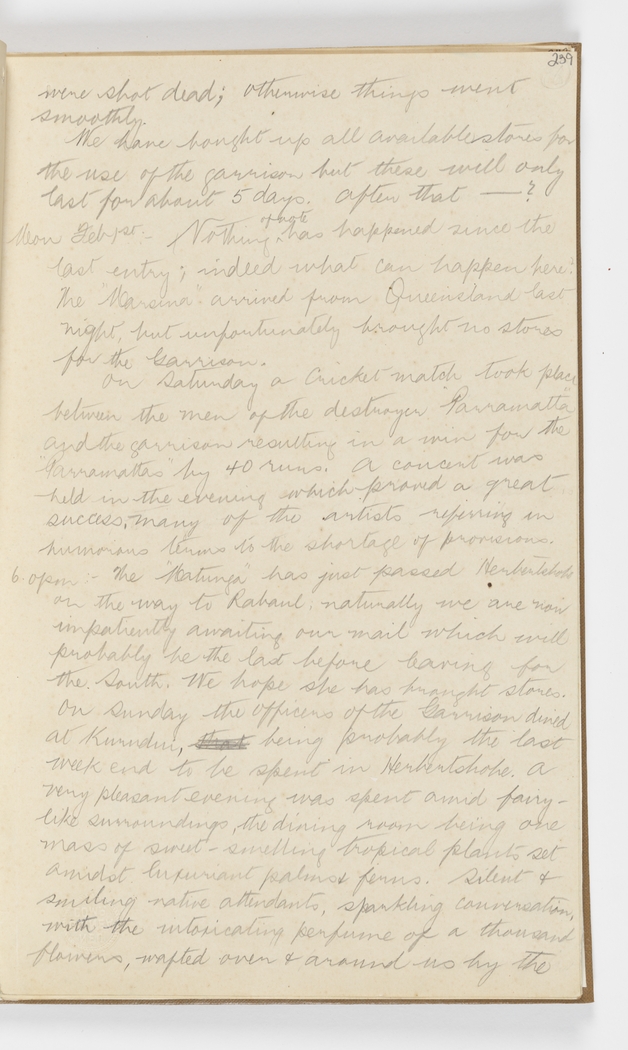 239
were shot dead; otherwise things went
smoothly.
We have bought up all available stores for
the use of the garrison but these will only
last for about 5 days. After that — ?
Mon Feb 1st:- Nothing of note has happened since the
last entry; indeed what can happen here?
The "Marsina" arrived from Queensland last
night, but unfortunately brought no stores
for the Garrison.
On Saturday a Cricket match took place
between the men of the destroyer "Parramatta"
and the garrison resulting in a win for the
"Parramattas" by 40 runs. A concert was
held in the evening which proved a great
success, many of the artists referring in
humorous terms to the shortage of provisions.
6.0pm:- The "Matunga" has just passed Herbertshohe
on the way to Rabaul; naturally we are now
impatiently awaiting our mail which will
probably be the last before leaving for
the South. We hope she has brought stores.
On Sunday the officers of the Garrison dined
at Kurudui, that being probably the last
week end to be spent in Herbertshohe. A
very pleasant evening was spent amid fairy-
like surroundings, the dining room being one
mass of sweet-smelling tropical plants set
amidst luxuriant palms & ferns. Silent &
smiling native attendants, sparkling conversation,
with the intoxicating perfume of a thousand
flowers, wafted over & around us by the